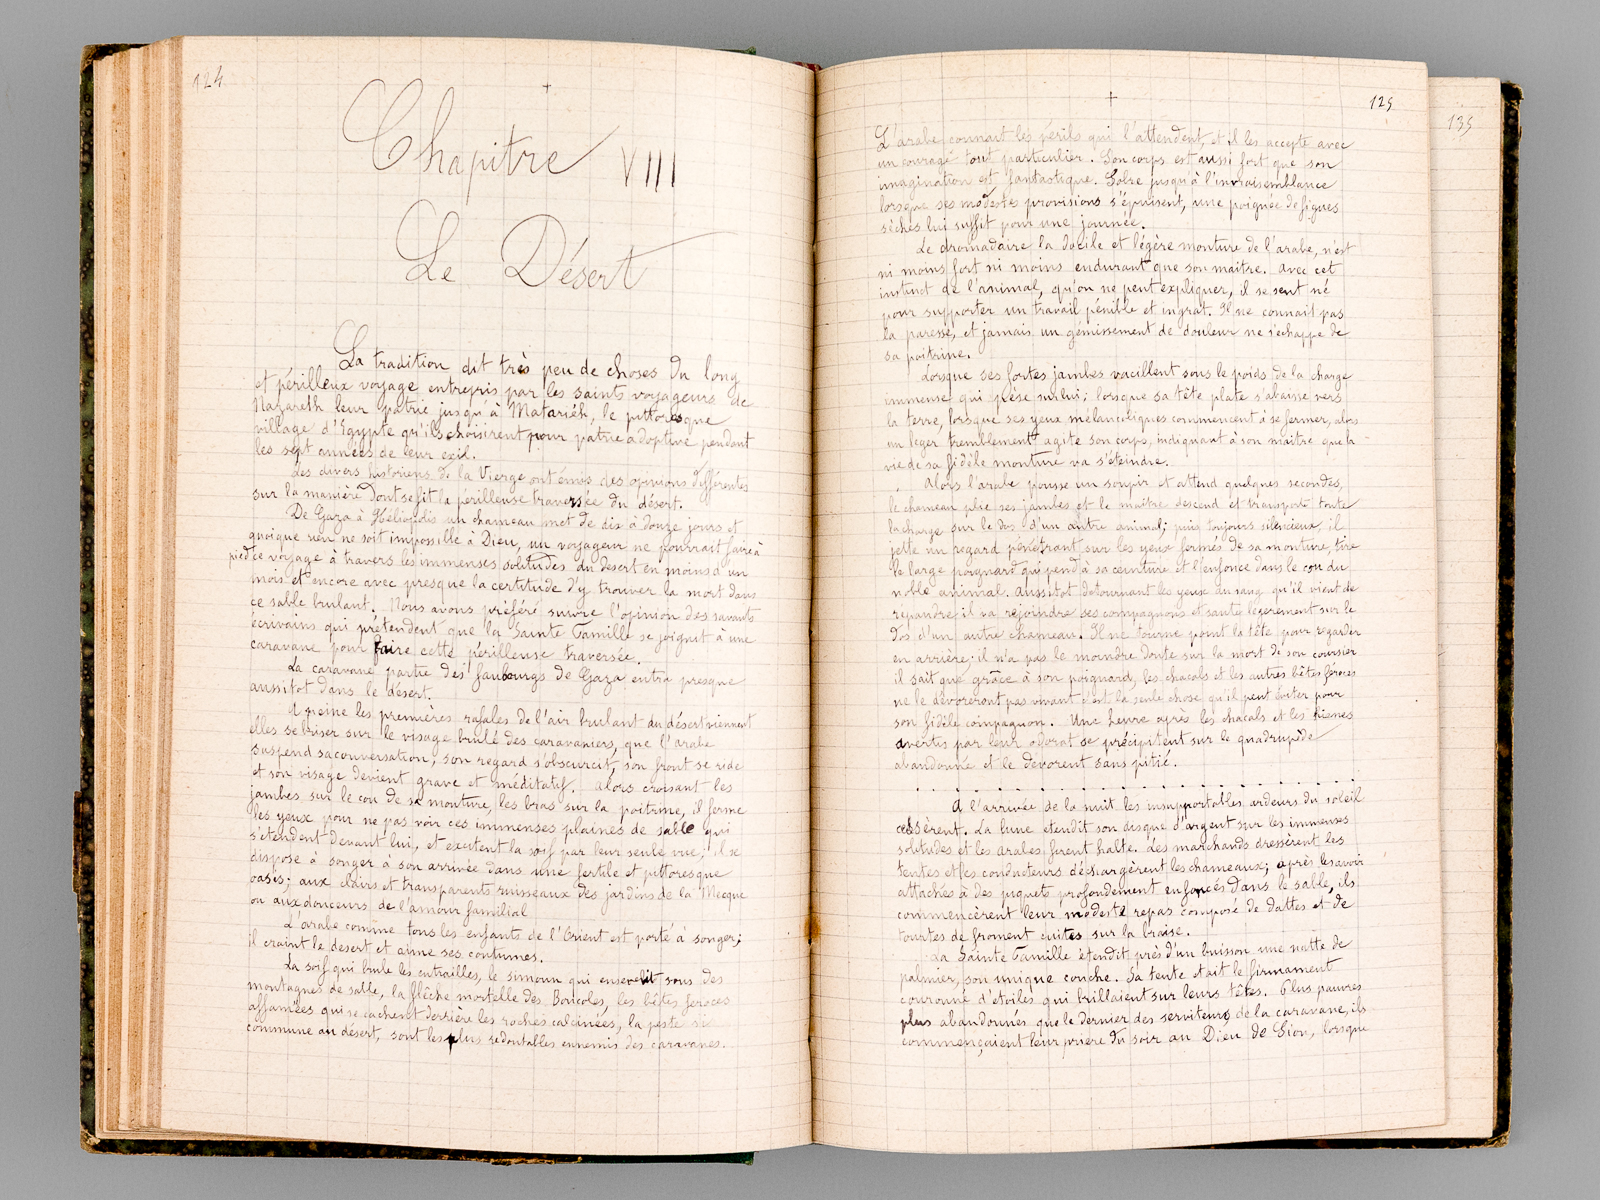 124
+
Chapitre VIII
Le Désert
La tradition dit très peu de choses du long
et périlleux voyage entrepris par les saints voyageurs de
Nazareth leur patrie jusqu'à Matariéh, le pittoresque
village d'Egypte qu'ils choisirent pour patrie adoptive pendant
les sept années de leur exil.
Les divers historiens de la Vierge ont émis des opinions différentes
sur la manière dont se fit la périlleuse traversée du désert.
De Gaza à Héliopolis un chameau met de dix à douze jours et
quoique rien ne soit impossible à Dieu, un voyageur ne pourrait faire à
pied ce voyage à travers les immenses solitudes du desert en moins d'un
mois et encore avec presque la certitude d'y trouver la mort dans
ce sable brulant. Nous avons préféré suivre l'opinion des savants
écrivains qui prétendent que la Sainte Famille se joignit à une
caravane pour faire cette périlleuse traversée.
La caravane partie des faubourgs de Gaza entra presque
aussitot dans le désert.
A peine les premières rafales de l'air brulant du désert viennent
elles se briser sur le visage brulé des caravaniers, que l'arabe
suspend sa conversation; son regard s'obscurcit, son front se ride
et son visage devient grave et méditatif. Alors croisant les
jambes sur le cou de sa monture, les bras sur la poitrine, il ferme
les yeux pour ne pas voir ces immenses plaines de sable qui
s'étendent devant lui, et excitent la soif par leur seule vue; il se
dispose à songer à son arrivée dans une fertile et pittoresque
oasis; aux clairs et transparents ruisseaux des jardins de la Mecque
ou aux douceurs de l'amour familial
L'arabe comme tous les enfants de l'Orient est porté à songer;
il craint le desert et aime ses coutumes.
La soif qui brule les entrailles, le simoun qui ensevelit sous des
montagnes de sable, la flêche mortelle des Boricoles, les bêtes feroces
affamées qui se cachent derrière les roches calcinées, la peste si
commune au désert, sont les plus redoutables ennemis des caravanes.
125
+
L'arabe connait les perils qui l'attendent, et il les accepte avec
un courage tout particulier. Son corps est aussi fort que son
imagination est fantastique. Sobre jusqu'à l'invraisemblance
lorsque ses modestes provisions s'épuisent, une poignée de figues
sèches lui suffit pour une journée.
Le dromadaire la docile et légère monture de l'arabe, n'est
ni moins fort ni moins endurant que son maitre. Avec cet
instinct de l'animal, qu'on ne peut expliquer, il se sent né
pour supporter un travail pénible et ingrat. Il ne connait pas
la paresse, et jamais un gémissement de douleur ne s'échappe de
sa poitrine.
Lorsque ses fortes jambes vacillent sous le poids de la charge
immense qui pèse sur lui; lorsque sa tête plate s'abaisse vers
la terre, lorsque ses yeux mélancoliques commencent à se fermer, alors
un leger tremblement agite son corps, indiquant à son maitre que la
vie de sa fidèle monture va s'éteindre.
Alors l'arabe pousse un soupir et attend quelques secondes,
le chameau plie ses jambes et le maitre descend et transporte toute
la charge sur le dos d'un autre animal; puis toujours silencieux, il
jette un regard pénétrant sur les yeux fermés de sa monture, tire
le large poignard qui pend à sa ceinture et l'enfonce dans le cou du
noble animal. Aussitot detournant les yeux du sang qu'il vient de
repandre il va rejoindre ses compagnons et saute légerement sur le
dos d'un autre chameau. Il ne tourne point la tête pour regarder
en arrière; il n'a pas le moindre doute sur la mort de son coursier
il sait que grâce à son poignard, les chacals et les autres bêtes féroces
ne le dévoreront pas vivant c'est la seule chose qu'il peut éviter pour
son fidèle compagnon. Une heure après les chacals et les hienes
avertis par leur odorat se précipitent sur le quadrupède
abandonné et le devorent sans pitié.
. . . . . . . . . . . . . . . . . . . .
A l'arrivée de la nuit les insupportables ardeurs du soleil
cessèrent. La lune etendit son disque d'argent sur les immenses
solitudes et les arabes firent halte. Les marchands dressèrent les
tentes et les conducteurs déchargèrent les chameaux; après les avoir
attachés à des piquets profondement enfoncés dans le sable, ils
commencèrent leur modeste repas composé de dattes et de
tourtes de froment cuites sur la braise.
La Sainte Famille étendit près d'un buisson une natte de
palmier, son unique couche. Sa tente etait le firmament
couronné d'etoiles qui brillaient sur leurs têtes. Plus pauvres
plus abandonnés que le dernier des serviteurs de la caravane, ils
commençaient leur prière du soir au Dieu de Sion, lorsque
135